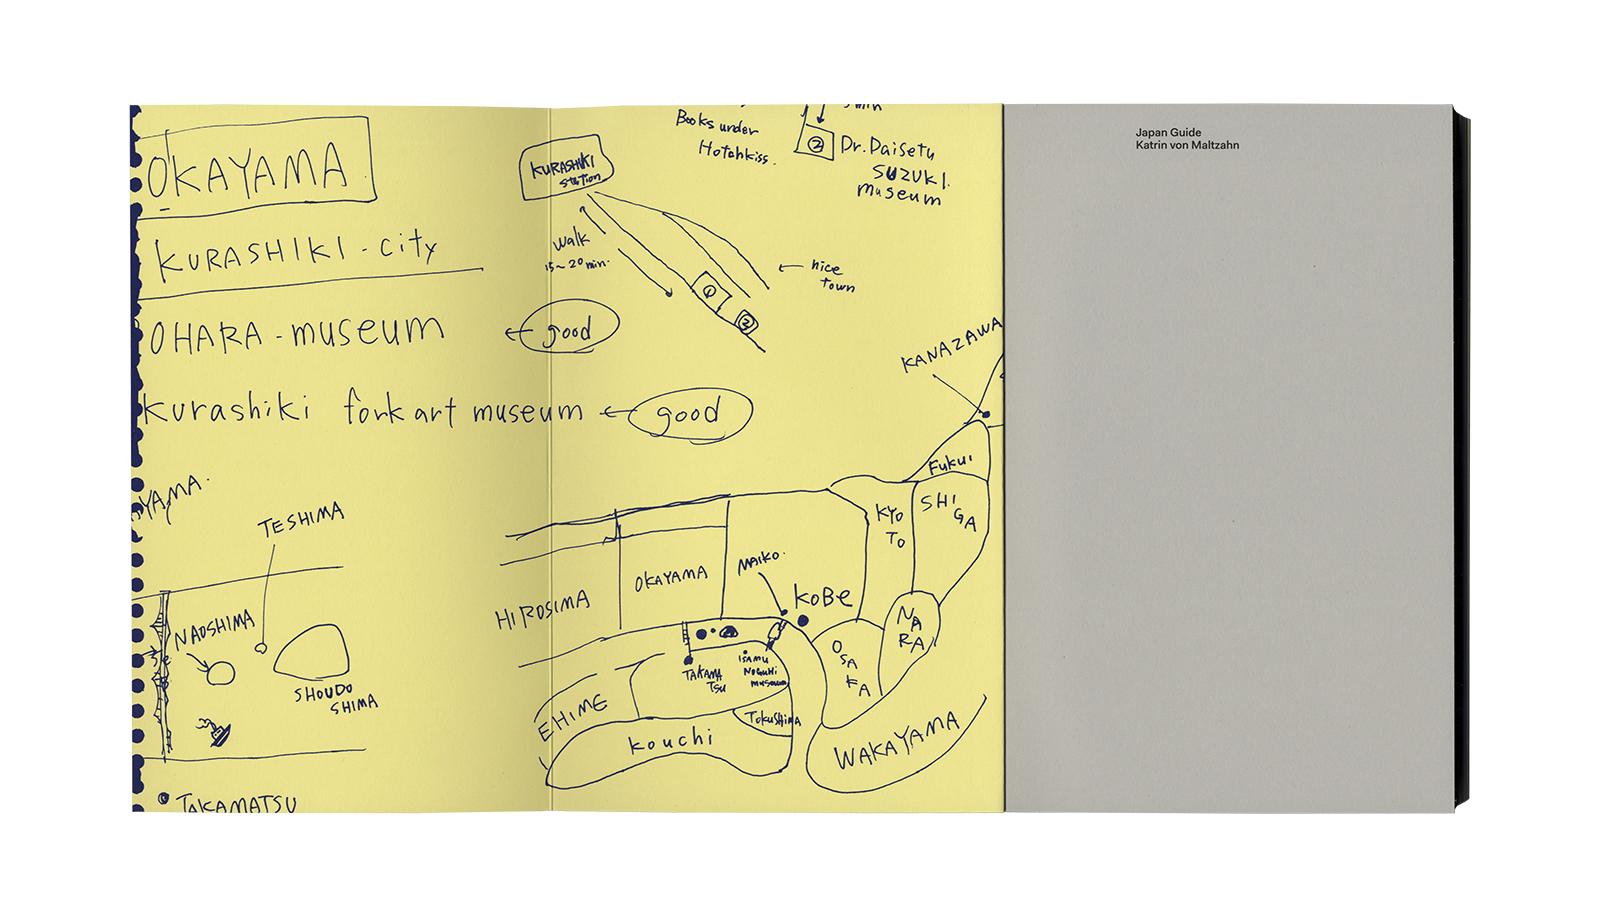 OKAYAMA
KURASHIKI - city
OHARA - museum ← good
Kurashiki fork art museum ← good
YAMA.
TESHIMA
NAOSHIMA
SHOUDO
SHIMA
TAKAMATSU
KURASHIKI
station
walk
15~20 min.
1
2
← nice
town
Books under
Hotchkiss.
5 min
2 Dr. Daisetu
SUZUKI.
museum
KANAZAWA
Fukui
SHI
GA
KYO
TO
NA
RA
OSAKA
MAIKO.
KOBE
OKAYAMA
HIROSIMA
TAKAMA
TSU
ISAMU
NOGUHI
museum
EHIME
Tokushima
kouchi
WAKAYAMA
Japan Guide
Katrin von Maltzahn